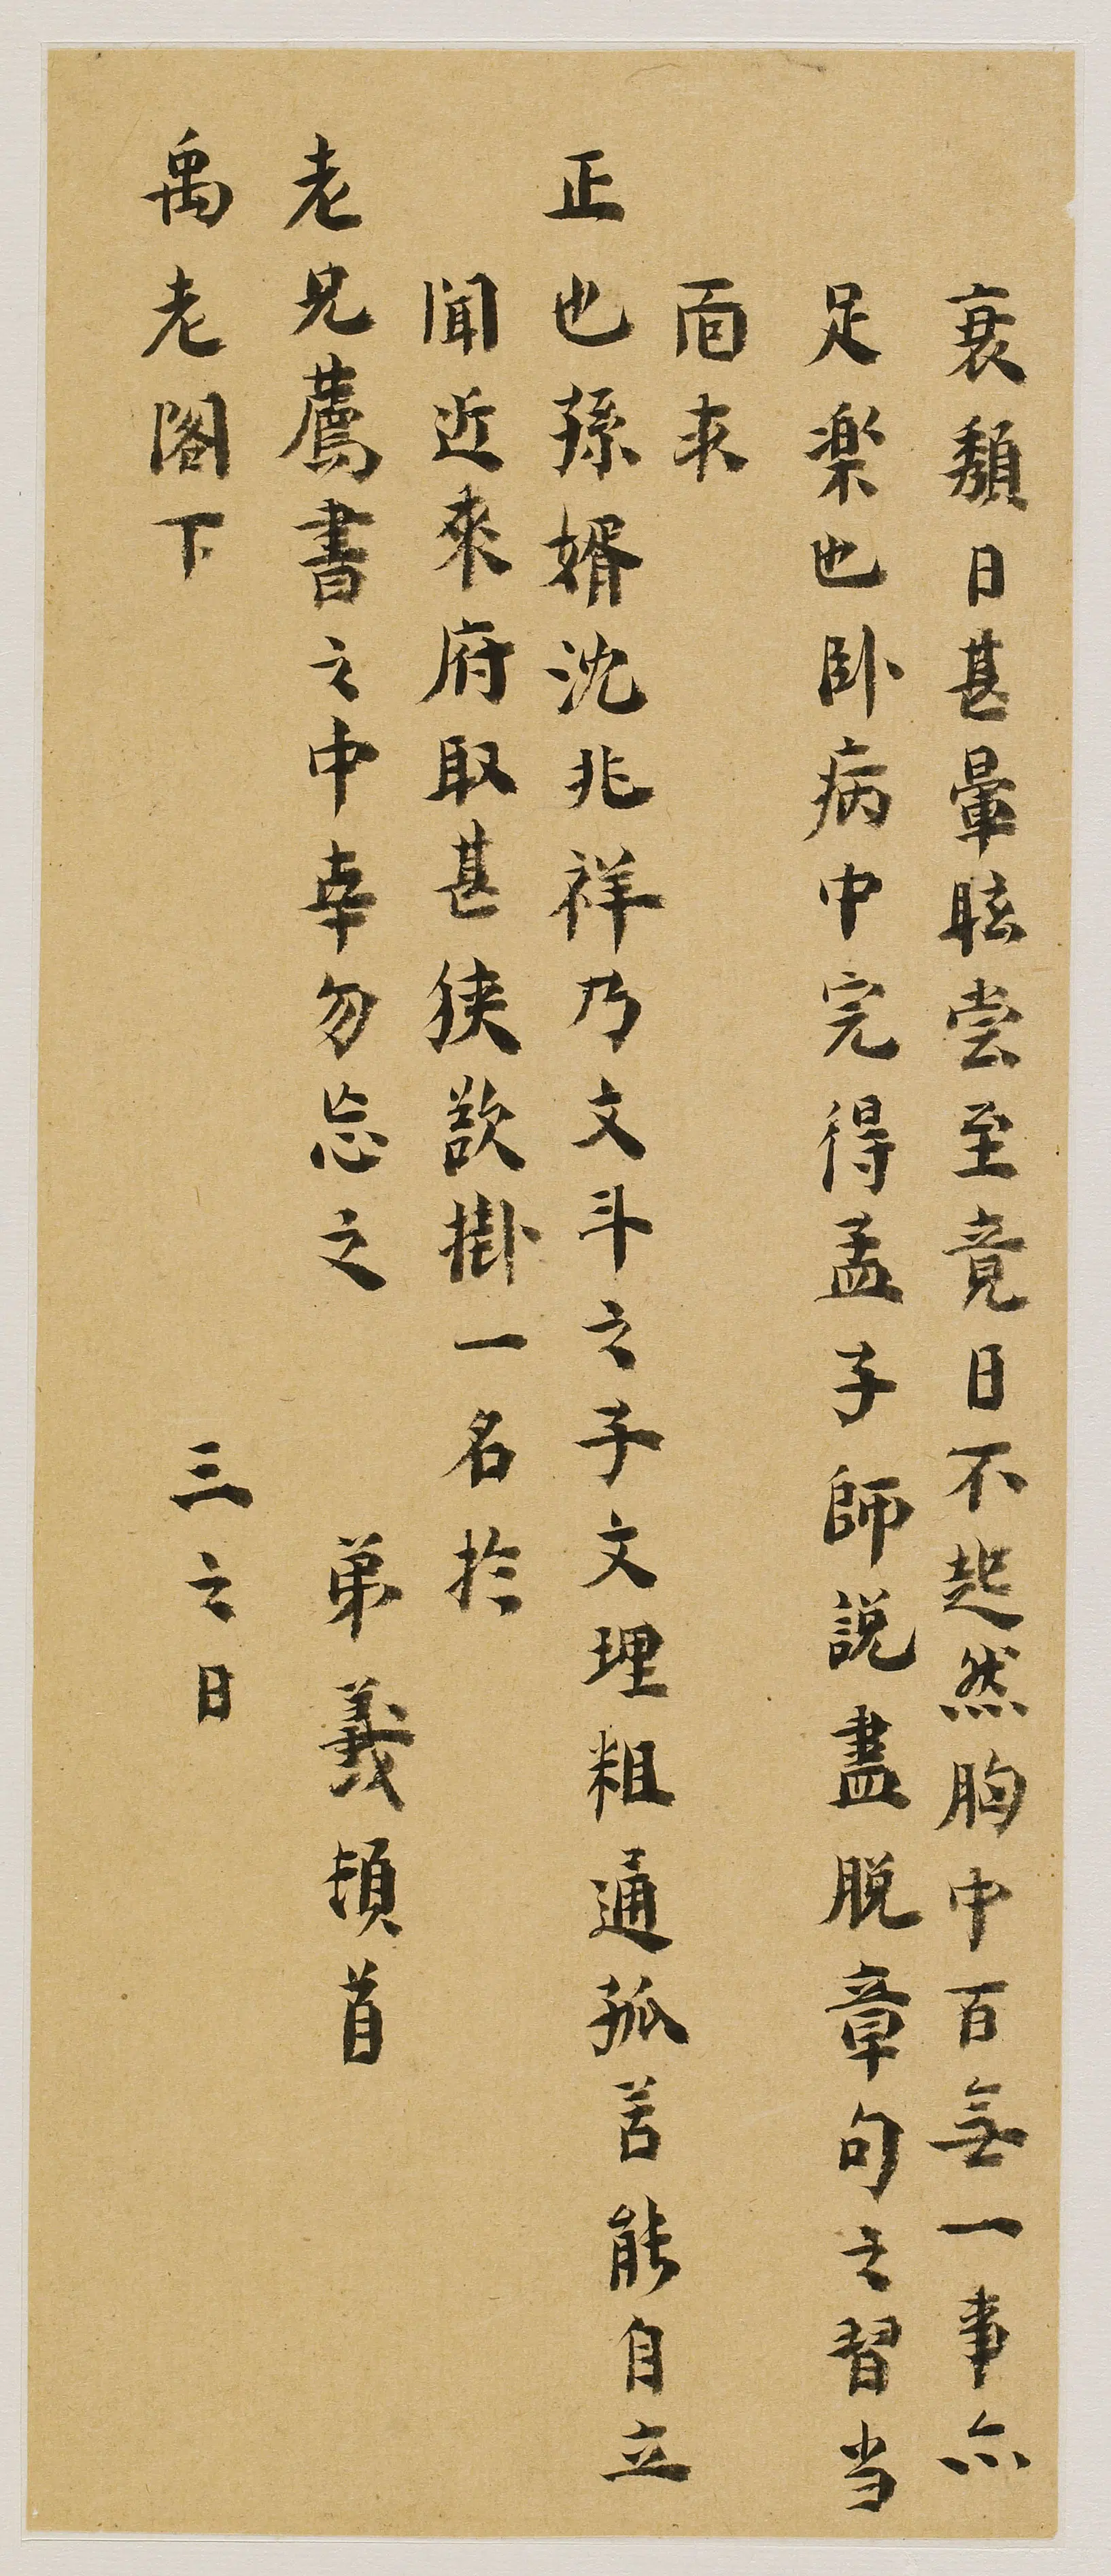 衰頹日甚暈眩嘗至竟日不起然胸中百無一事亦
足樂也卧病中完得孟子師說盡脫章句之習当
面求
正也孫婿沈兆祥乃文斗之子文理粗通孤苦能自立
聞近來府取甚狹欲掛一名於
老兄薦書之中幸勿忘之　弟義頓首
禹老閣下　三之日